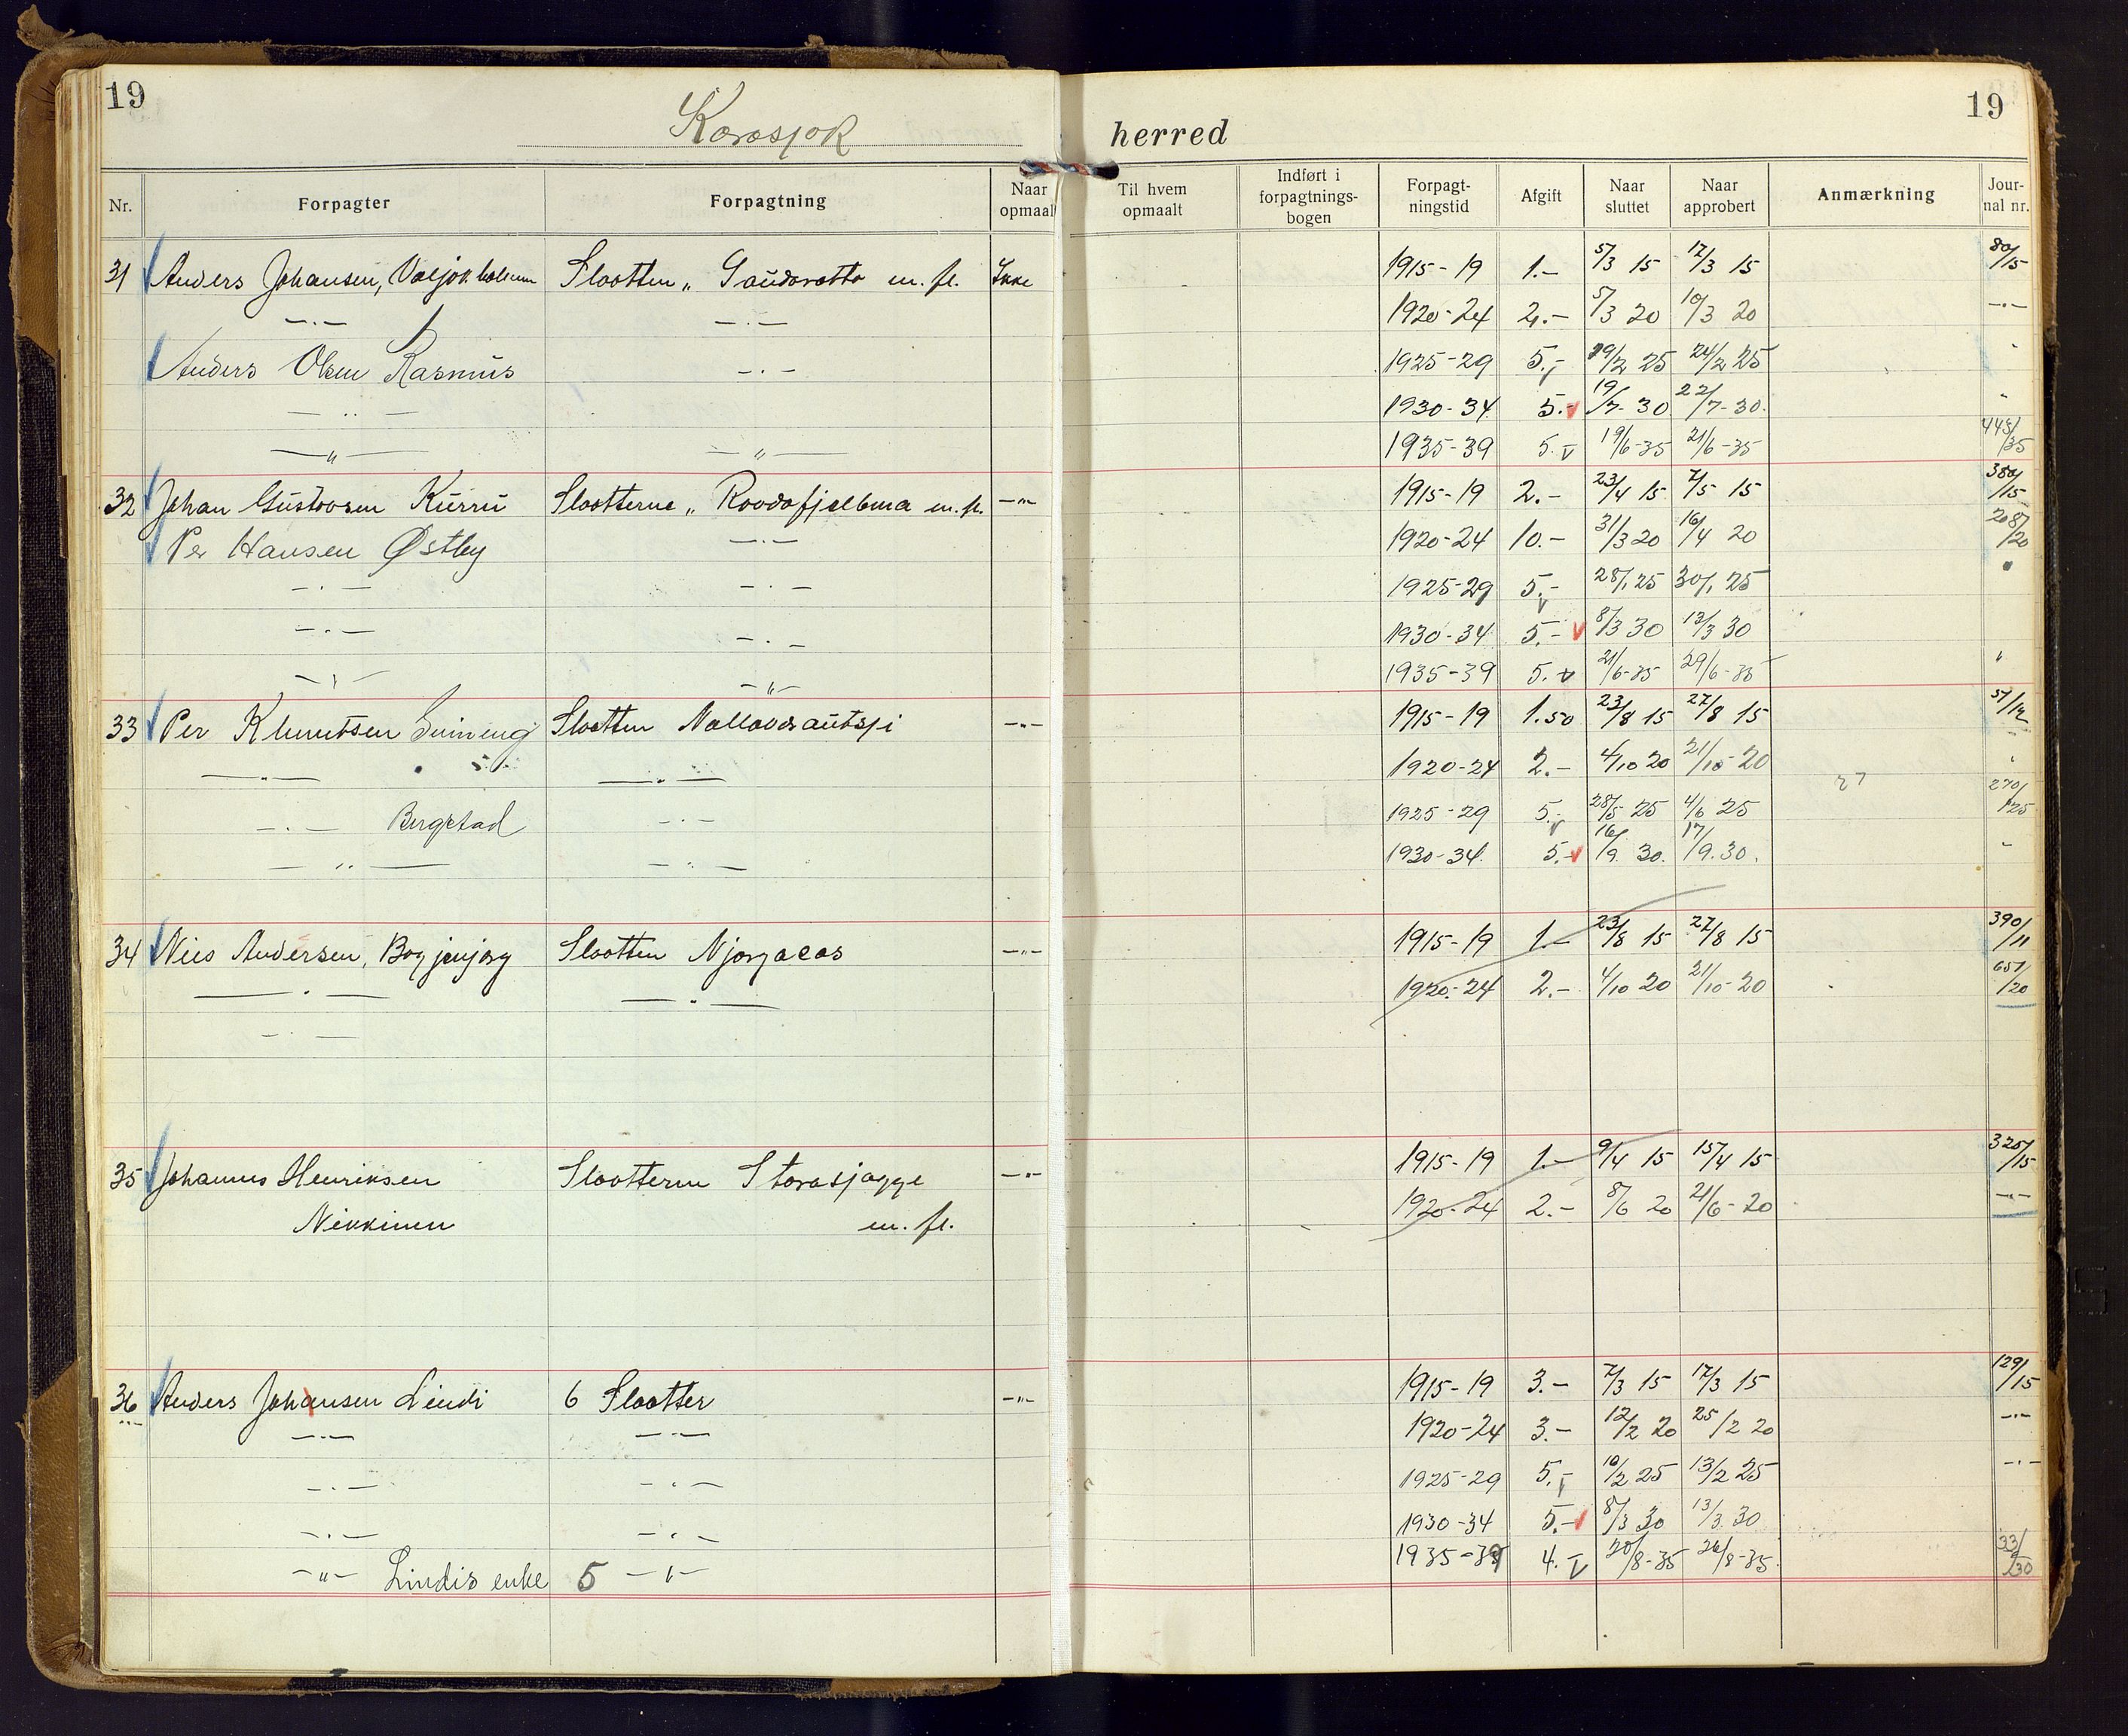 19
19
Karasjok herred
Nr. Forpagter Forpagtning Naar opmaalt Til hvem opmaalt Indført i forpagtnings-bogen Forpagt-ningstid Afgift Naar sluttet Naar approbert Anmærkning Jour-nal nr.
31 Anders Johansen, Slaatten „ m. fl. Ikke 1915-19 1.- 5/3 15 12/3 15 80/15
—„— —„— 1920-24 2.- 5/3 20 10/3 20 —„—
Anders Olsen Rasmus —„— 1925-29 5.- 19/2 25 24/2 25 "
—„— 1930-34 5.- 19/7-30 22/7-30. "
—„— —„— 1935-39 5. 19/6-35 21/6-35 445/35
32 Johan Gustavsen Kurru Slaatterne „ m. fl. —„— 1915-19 2.- 23/4 15 7/5 15 380/15
Per Hansen Østby —„— 1920-24 10.- 31/3 20 16/4 20 208/20
—„— —„— 1925-29 5.- 28/1 25 30/1 25 "
—„— —„— 1930-34 5.- 8/3 30 13/3 30
—„— —„— 1935-39 5. 21/6-35 29/6-35 "
33 Per Klemetsen Slaatten —„— 1915-19 1.50 23/8 15 27/8 15
—„— —„— 1920-24 2.- 4/10 20 21/10-20 "
—„— Bergstad —„— 1925-29 5.- 28/5 25 4/6 25 270/25
—„— —„— 1930-34. 5.- 16/9. 30. 17/9. 30. "
34 Nils Andersen, Slaatten —„— 1915-19 1.- 23/8 15 27/8 15 390/11
—„— —„— 1920-24 2.- 4/10 20 21/10-20 651/20
—„—
35 Johannes Henriksen Slaatterne Storasjogge —„— 1915-19 1.- 9/4 15 15/4 15 325/15
Nikkinen m. fl. 1920-24 2.- 8/6 20 21/6-20 —„—
36 Anders Johansen Lindi 6 Slaatter —„— 1915-19 3.- 7/3 15 17/3 15 129/15
—„— —„— 1920-24 3.- 12/2 20 25/2 20 —„—
—„— —„— 1925-29 5.- 10/2 25 13/2 25 —„—
—„— —„— 1930-34 5.- 8/3 30 13/3. 30
—„— Lindis enke 5 —„— 1935-39 4. 20/8-35 26/8-35. 33/30